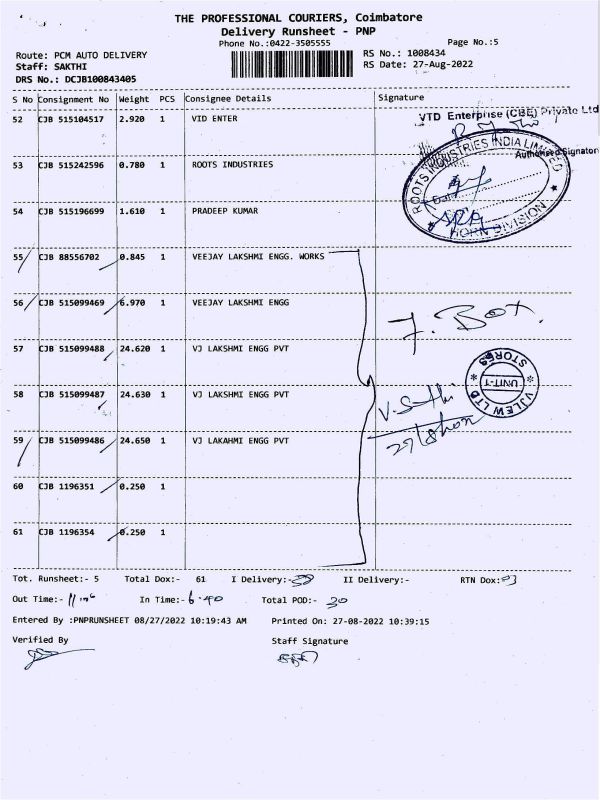 THE PROFESSIONAL COURIERS, Coimbatore
Delivery Runsheet - PNP
Phone No.:0422-3505555
Page No.:5
Route: PCM AUTO DELIVERY
RS No.: 1008434
Staff: SAKTHI
RS Date: 27-Aug-2022
DRS No.: DCJB100843405
S No Consignment No Weight PCS Consignee Details Signature
52 CJB 515104517 2.920 1 VID ENTER
VTD Enterprise (CBE) Private Ltd
Authorised Signatory
53 CJB 515242596 0.780 1 ROOTS INDUSTRIES
ROOTS INDUSTRIES INDIA LIMITED
HORN DIVISION
54 CJB 515196699 1.610 1 PRADEEP KUMAR
55 CJB 88556702 0.845 1 VEEJAY LAKSHMI ENGG. WORKS
56 CJB 515099469 6.970 1 VEEJAY LAKSHMI ENGG
7. Box.
57 CJB 515099488 24.620 1 VJ LAKSHMI ENGG PVT
STORES
UNIT-1
VJLEW LTD
58 CJB 515099487 24.630 1 VJ LAKSHMI ENGG PVT
59 CJB 515099486 24.650 1 VJ LAKAHMI ENGG PVT
60 CJB 1196351 0.250 1
61 CJB 1196354 0.250 1
Tot. Runsheet:- 5 Total Dox:- 61 I Delivery:- II Delivery:- RTN Dox:-
Out Time:- In Time:- 6.40 Total POD:- 30
Entered By :PNPRUNSHEET 08/27/2022 10:19:43 AM Printed On: 27-08-2022 10:39:15
Verified By Staff Signature